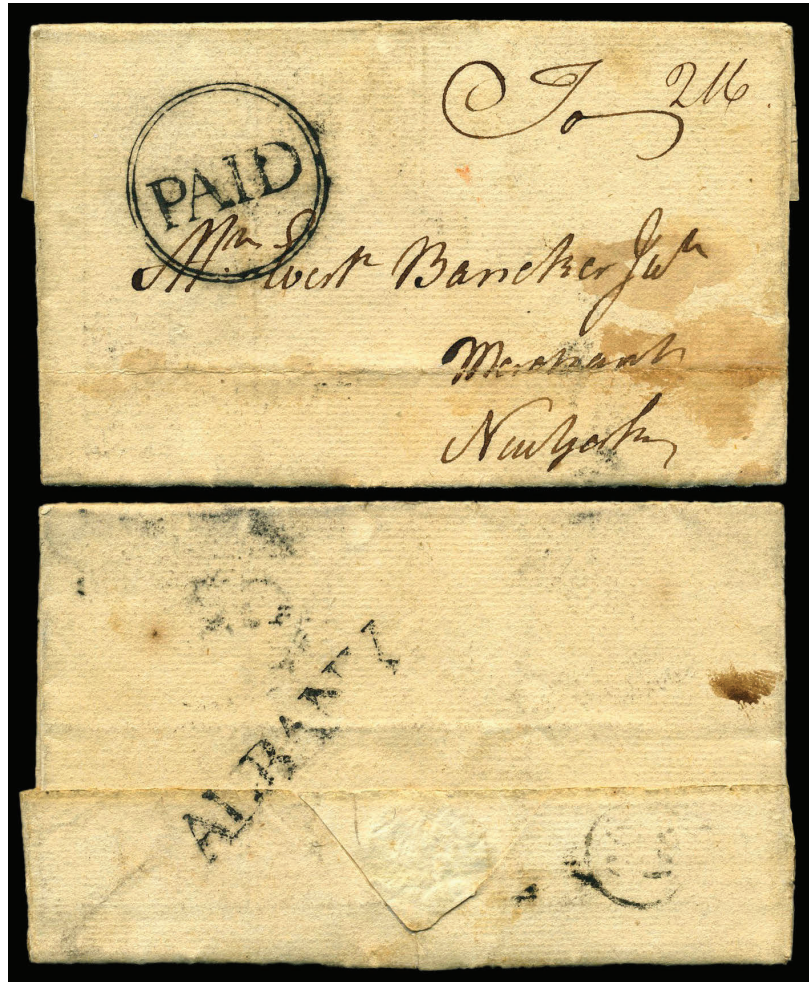 To 2/16
PAID
Mr. Evert Bancker Junr
Merchant
New York
ALBANY